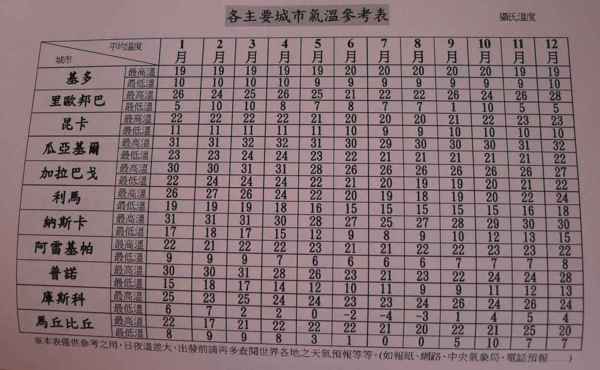 各主要城市氣溫參考表
攝氏溫度
平均溫度 1月 2月 3月 4月 5月 6月 7月 8月 9月 10月 11月 12月
城市
基多 最高溫 19 19 19 19 19 20 20 20 20 20 19 19
最低溫 10 10 10 10 10 9 9 9 9 9 9 10
里歐邦巴 最高溫 26 24 25 26 25 21 22 22 26 24 26 28
最低溫 5 10 10 8 7 8 7 7 1 10 5 5
昆卡 最高溫 22 22 22 22 21 20 20 20 21 22 23 23
最低溫 11 11 11 11 11 10 9 9 10 10 10 10
瓜亞基爾 最高溫 31 31 32 32 31 30 29 30 30 30 31 32
最低溫 23 23 24 24 23 22 21 21 21 21 21 22
加拉巴戈 最高溫 30 30 31 31 28 26 26 26 26 26 26 27
最低溫 22 24 24 24 22 21 20 19 19 20 21 22
利馬 最高溫 26 27 26 24 22 20 19 18 19 20 22 24
最低溫 19 19 19 18 16 15 15 15 15 15 16 18
納斯卡 最高溫 31 31 31 30 28 27 25 27 28 29 30 30
最低溫 17 18 17 15 12 9 8 9 10 12 13 15
阿雷基帕 最高溫 22 21 22 22 23 21 21 22 22 23 23 22
最低溫 9 9 9 7 6 6 6 6 7 7 7 8
普諾 最高溫 30 30 31 28 26 23 21 23 22 24 24 28
最低溫 15 18 17 14 12 10 11 9 9 11 12 13
庫斯科 最高溫 25 23 25 24 24 23 23 24 26 24 26 24
最低溫 6 7 2 2 0 -2 -4 -3 1 4 5 4
馬丘比丘 最高溫 22 17 21 22 22 22 21 20 22 21 25 20
最低溫 8 9 9 8 3 1 0 0 5 10 7 7
※本表僅供參考之用，日夜溫差大，出發前請再多查閱世界各地之天氣預報等等。(如報紙、網路、中央氣象局、電話預報......)